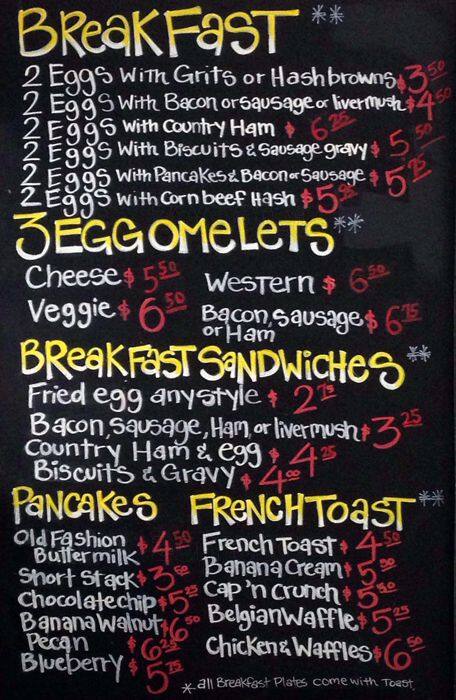 BreakFast **
2 Eggs with Grits or Hashbrowns $3.50
2 Eggs with Bacon or sausage or livermush $4.50
2 Eggs with Country Ham $6.25
2 Eggs with Biscuits & Sausage gravy $5.50
2 Eggs with Pancakes & Bacon or Sausage $5.75
2 Eggs with Corn beef Hash $5.95
3 EGG OMELETS **
Cheese $5.50 Western $6.50
Veggie $6.50 Bacon, Sausage or Ham $6.75
BreakFast SANDWiches **
Fried egg any style $2.75
Bacon, sausage, Ham, or livermush $3.25
Country Ham & egg $4.25
Biscuits & Gravy $4.00
PANCAKES
Old Fashion
Buttermilk $4.50
Short Stack $3.50
Chocolate chip $5.25
Banana Walnut $6.50
Pecan $6.25
Blueberry $5.75
FRENCH TOAST **
French Toast $4.50
Banana Cream $5.50
Cap 'n Crunch $5.50
Belgian Waffle $5.25
Chicken & Waffles $6.50
* all Breakfast Plates come with Toast